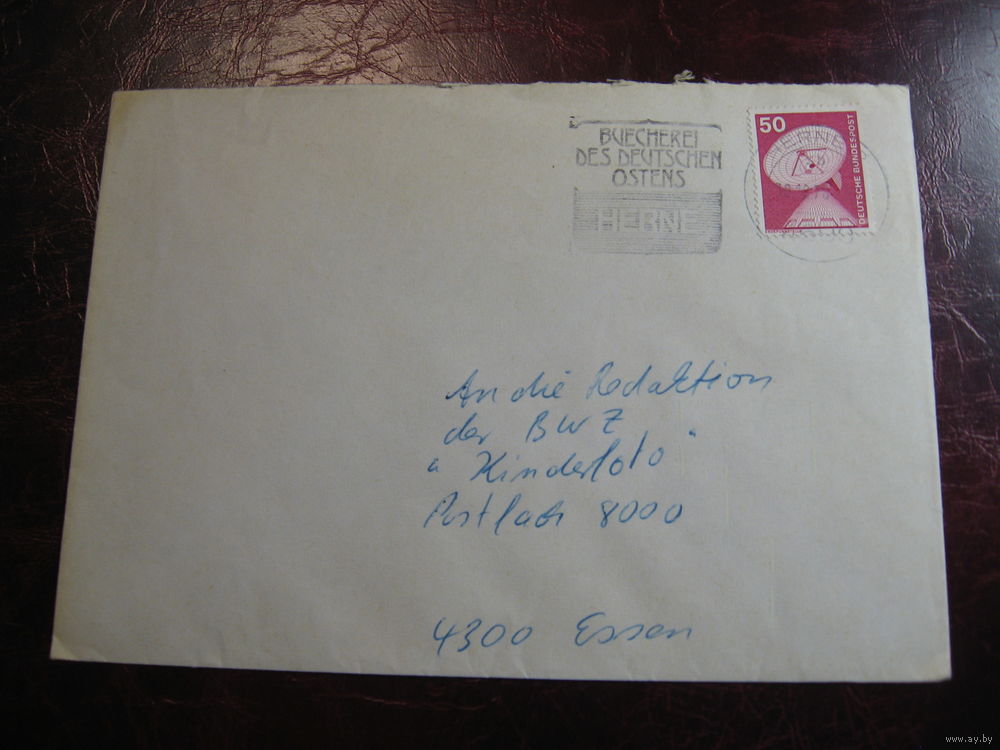 BUECHEREI
DES DEUTSCHEN
OSTENS
HERNE
50
DEUTSCHE BUNDESPOST
An die Redaktion
der BWZ
"Kinderfoto"
Postfach 8000
4300 Essen
www.ay.by